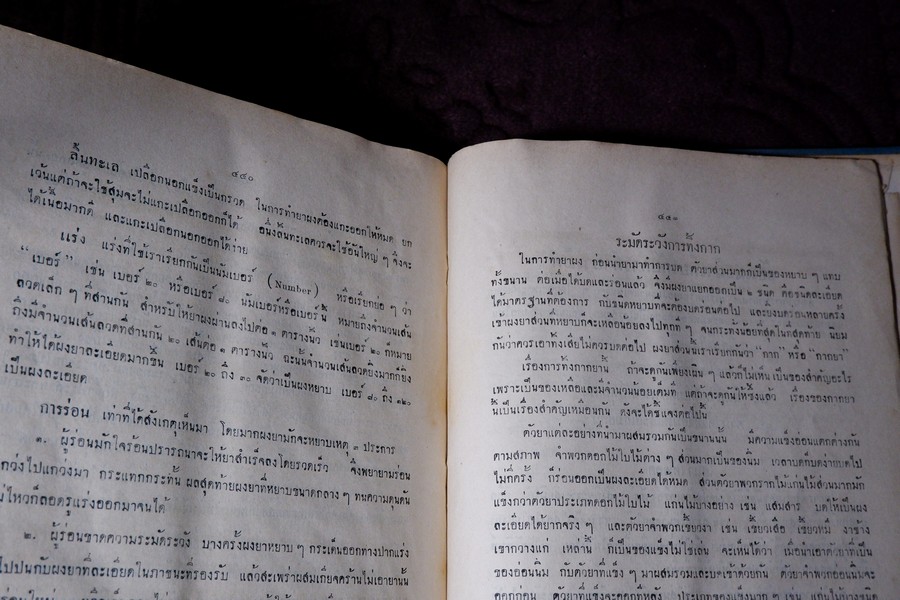 ๔๔๐
ลิ้นทะเล เปลือกนอกแข็งเป็นกรวด ในการทำยาผงต้องแกะออกให้หมด ยก
เว้นแต่ถ้าจะใช้สุมจะไม่แกะเปลือกออกก็ได้ อนึ่งลิ้นทะเลควรจะใช้อันใหญ่ ๆ จึงจะ
ได้เนื้อมากดี และแกะเปลือกนอกออกได้ง่าย
แร่ง แร่งที่ใช้เราเรียกกันเป็นนัมเบอร์ (Number) หรือเรียกย่อ ๆ ว่า
"เบอร์" เช่น เบอร์ ๒๐ หรือเบอร์ ๘๐ นัมเบอร์หรือเบอร์นี้ หมายถึงจำนวนเส้น
ลวดเล็ก ๆ ที่สานกัน สำหรับให้ยาผงผ่านลงไปต่อ ๑ ตารางนิ้ว เช่นเบอร์ ๒๐ ก็หมาย
ถึงมีจำนวนเส้นลวดที่สานกัน ๒๐ เส้นต่อ ๑ ตารางนิ้ว ฉะนั้นจำนวนเส้นลวดยิ่งมากก็ยิ่ง
ทำให้ได้ผงยาละเอียดมากขึ้น เบอร์ ๒๐ ถึง ๓๐ จัดว่าเป็นผงหยาบ เบอร์ ๘๐ ถึง ๑๒๐
เป็นผงละเอียด
การร่อน เท่าที่ได้สังเกตุเห็นมา โดยมากผงยามักจะหยาบเหตุ ๓ ประการ
๑. ผู้ร่อนมักใจร้อนปรารถนาจะให้ยาสำเร็จลงโดยรวดเร็ว จึงพยายามร่อน
กว่งไปแกว่งมา กระแทกกระทั้น ผลสุดท้ายผงยาที่หยาบขนาดกลาง ๆ ทนความดุนดัน
ไหวก็ลอดรูแร่งออกมาจนได้
๒. ผู้ร่อนขาดความระมัดระวัง บางครั้งผงยาหยาบ ๆ กระเด็นออกทางปากแร่ง
ไปปนกับผงยาที่ละเอียดในภาชนะที่รองรับ แล้วสะเพร่าผสมเกียจคร้านไม่เอายานั้น
๔๔๑
ระมัดระวังการทิ้งกาก
ในการทำยาผง ก่อนนำยามาทำการบด ตัวยาส่วนมากก็เป็นของหยาบ ๆ แทบ
ทั้งขนาน ต่อเมื่อได้บดและร่อนแล้ว จึงมีผงยาแยกออกเป็น ๒ ชนิด คือชนิดละเอียด
ได้มาตรฐานที่ต้องการ กับชนิดหยาบที่จะต้องบดร่อนต่อไป และยิ่งบดร่อนหลายครั้ง
เข้าผงยาส่วนที่หยาบก็จะเหลือน้อยลงไปทุกที ๆ จนกระทั่งน้อยที่สุดในที่สุดท้าย นิยม
กันว่าควรเอาทิ้งเสียไม่ควรบดต่อไป ผงยาส่วนนี้เราเรียกกันว่า "กาก" หรือ "กากยา"
เรื่องการทิ้งกากยานี้ ถ้าจะดูกันเพียงเผิน ๆ แล้วก็ไม่เห็นเป็นของสำคัญอะไร
เพราะเป็นของเหลือและมีจำนวนน้อยเต็มที แต่ถ้าจะดูกันให้ซึ้งแล้ว เรื่องของกากยา
นี้เป็นเรื่องสำคัญเหมือนกัน ดังจะได้ชี้แจงต่อไปนี้
ตัวยาแต่ละอย่างที่นำมาผสมรวมกันเป็นขนานนั้น มีความแข็งอ่อนแตกต่างกัน
ตามสภาพ จำพวกดอกไม้ใบไม้ต่าง ๆ ส่วนมากเป็นของนิ่ม เวลาบดก็บดง่ายบดไป
ไม่กี่ครั้ง ก็ร่อนออกเป็นผงละเอียดได้หมด ส่วนตัวยาพวกรากไม้แก่นไม้ส่วนมากมัก
แข็งกว่าตัวยาประเภทดอกไม้ใบไม้ แก่นไม้บางอย่าง เช่น แสมสาร บดให้เป็นผง
ละเอียดได้ยากจริง ๆ และตัวยาจำพวกเขี้ยวงา เช่น เขี้ยวเสือ เขี้ยวหมี งาช้าง
เขากวางแก่ เหล่านี้ ก็เป็นของแข็งไม่ใช่เล่น จะเห็นได้ว่า เมื่อนำเอาตัวยาที่เป็น
ของอ่อนนิ่ม กับตัวยาที่แข็ง ๆ มาผสมรวมและบดเข้าด้วยกัน ตัวยาจำพวกอ่อนนิ่มจะ
ออกก่อน ตัวยาที่แข็งจะออกทีหลัง ประเภทของแข็งมาก ๆ เช่น แก่นไม้บางชนิด